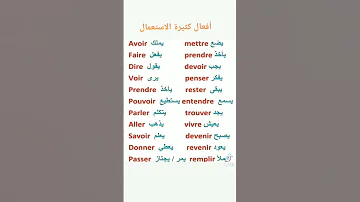 أفعال كثيرة الاستعمال
Avoir يمتلك mettre يضع
Faire يفعل prendre يأخذ
Dire يقول devoir يجب
Voir يرى penser يفكر
Prendre يأخذ rester يبقى
Pouvoir يستطيع entendre يسمع
Parler يتكلم trouver يجد
Aller يذهب vivre يعيش
Savoir يعلم devenir يصبح
Donner يعطي revenir يعود
Passer يمر / يجتاز remplir يملأ